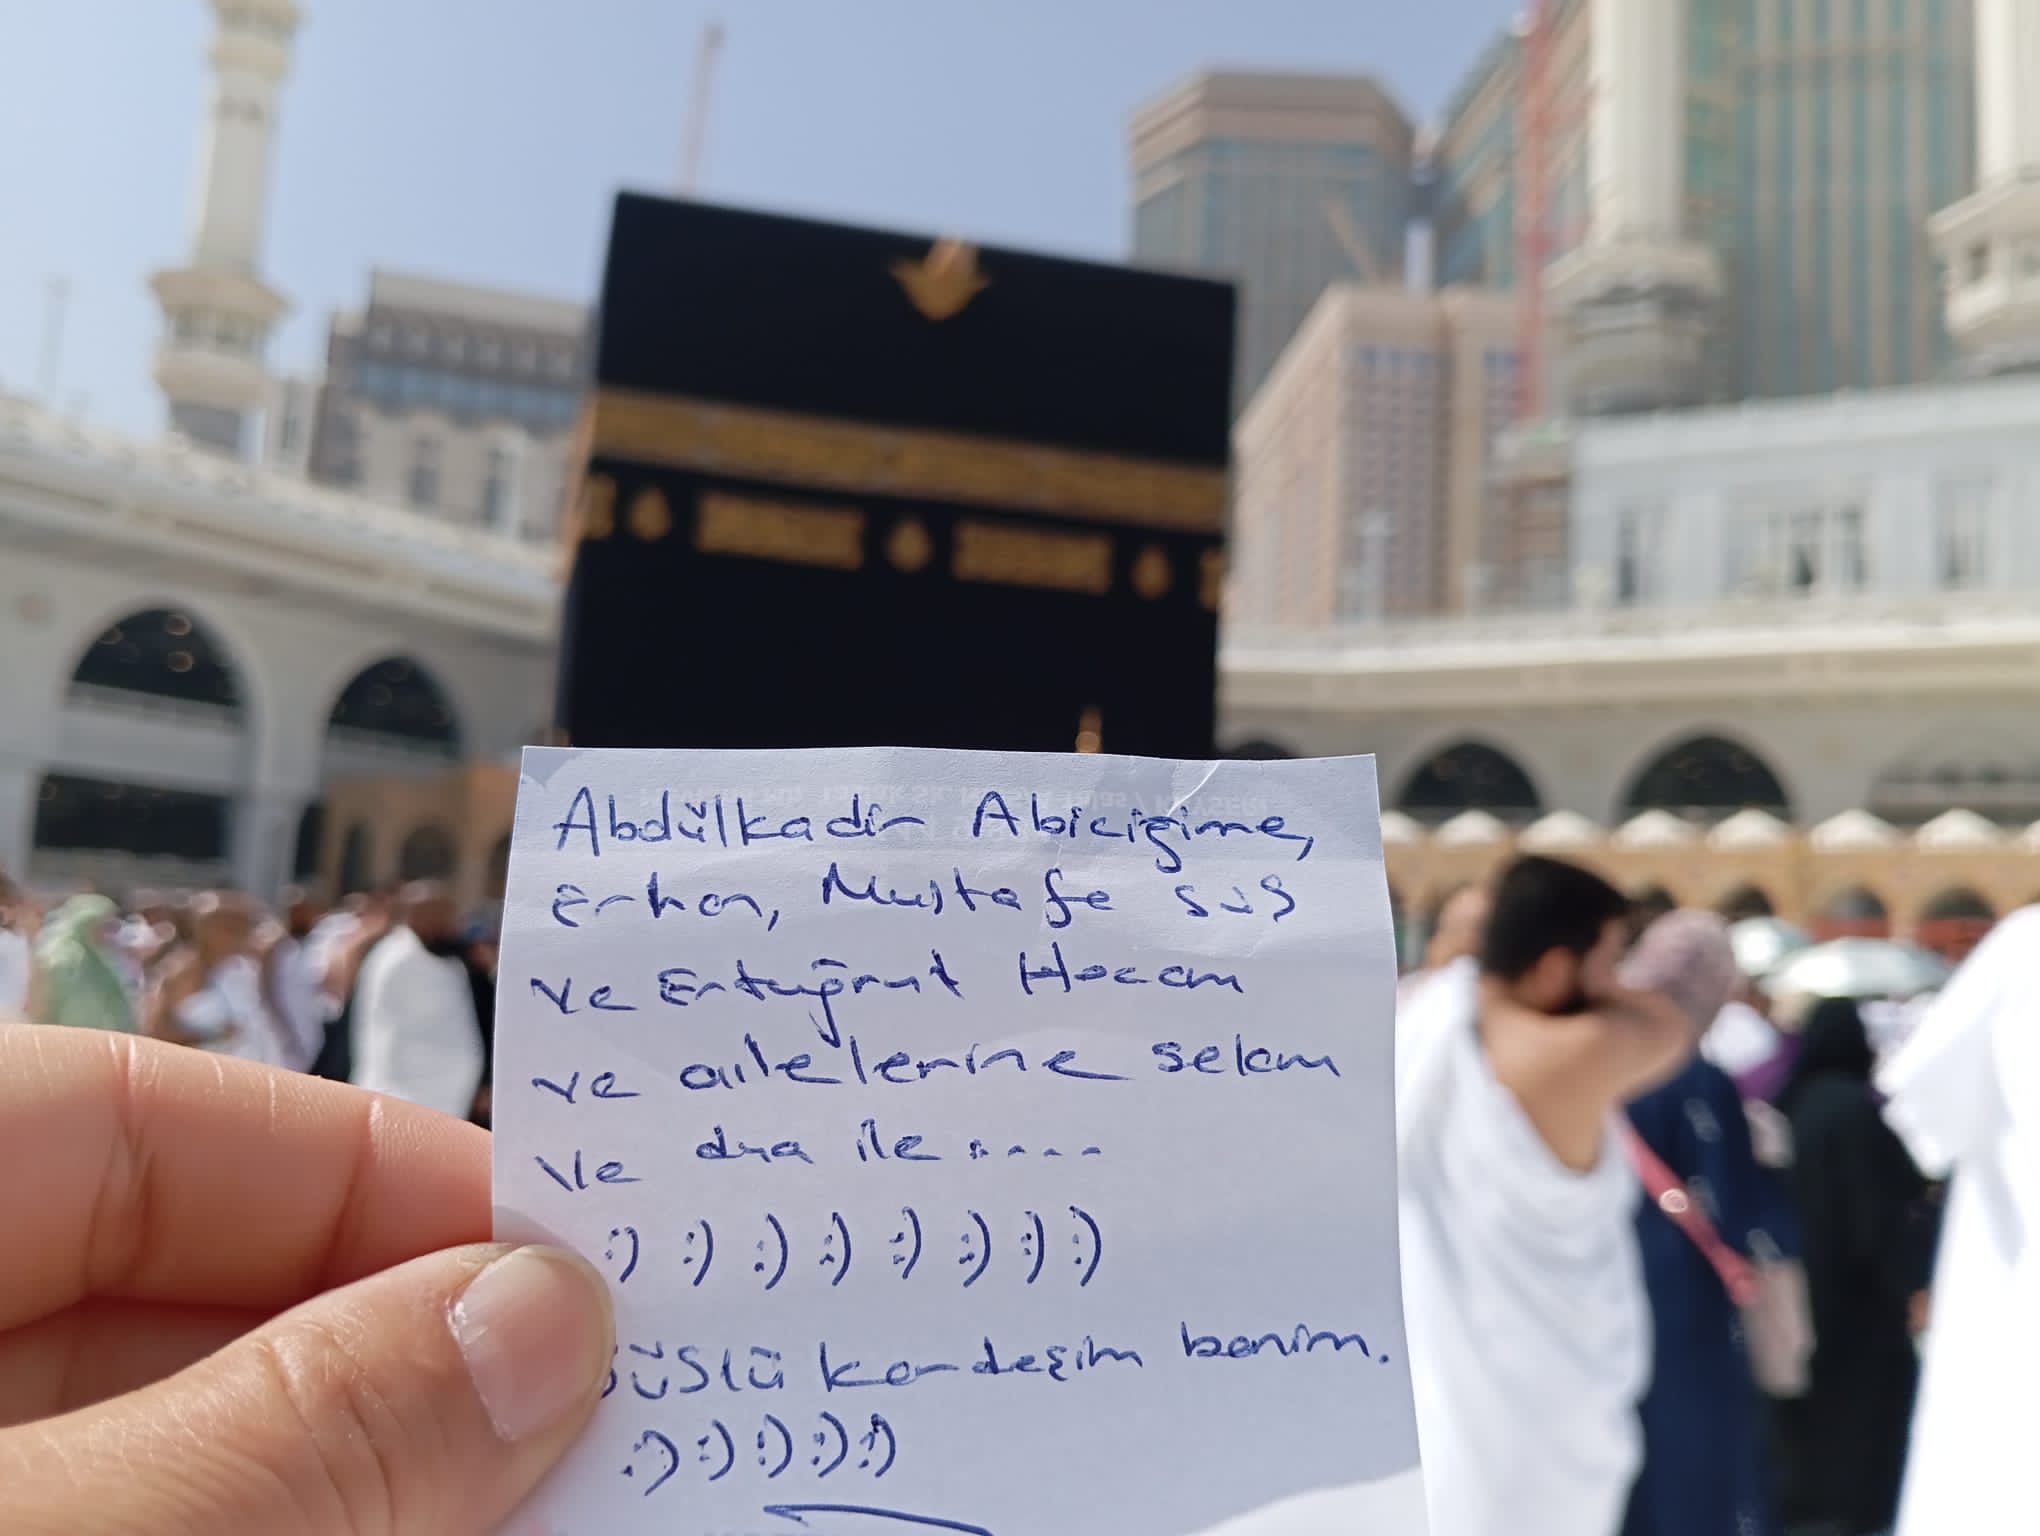 Abdülkadir Abiciğime,
Erhan, Mustafa SUS
ve Ertuğrul Hocam
ve ailelerine selam
ve dua ile .....
:) :) :) :) :) :) :) :)
kardeşim benim.
:) :) :) :) :)